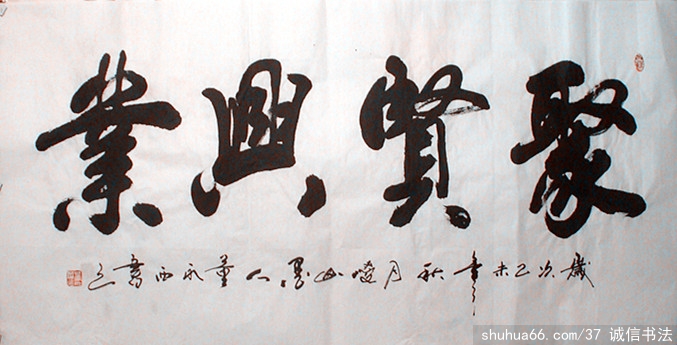 聚賢興業
歲次乙未年秋月山墨人董永西書
shuhua66.com/37 诚信书法